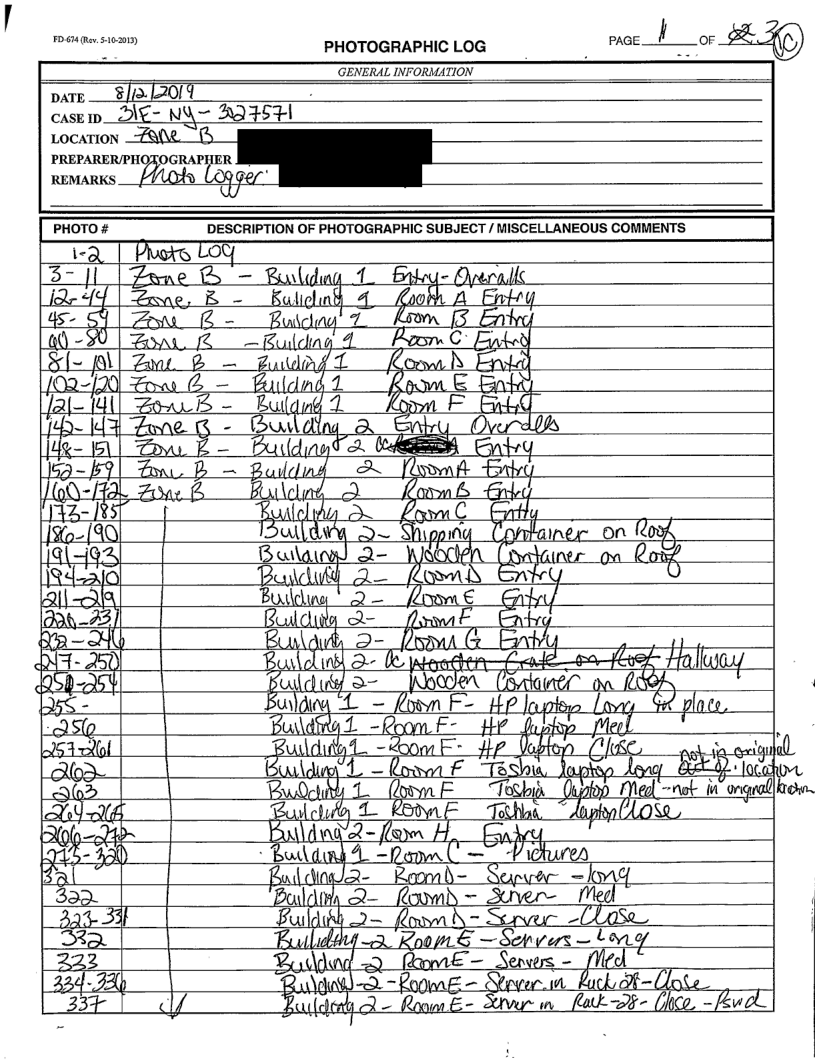 FD-674 (Rev. 5-10-2013)
PHOTOGRAPHIC LOG
PAGE 1 OF 3
GENERAL INFORMATION
DATE 8/12/2019
CASE ID 31E-NY-3027571
LOCATION Zone B
PREPARER/PHOTOGRAPHER
REMARKS Photo Logger:
PHOTO # DESCRIPTION OF PHOTOGRAPHIC SUBJECT / MISCELLANEOUS COMMENTS
1-2 Photo LOG
3-11 Zone B - Building 1 Entry-Overalls
12-44 Zone B - Building 1 Room A Entry
45-59 Zone B - Building 1 Room B Entry
60-80 Zone B - Building 1 Room C Entry
81-101 Zone B - Building 1 Room D Entry
102-120 Zone B - Building 1 Room E Entry
121-141 Zone B - Building 1 Room F Entry
142-147 Zone B - Building 2 Entry Overalls
148-151 Zone B - Building 2 Entry
152-159 Zone B - Building 2 Room A Entry
160-172 Zone B Building 2 Room B Entry
173-185 Building 2 Room C Entry
186-190 Building 2- Shipping Container on Roof
191-193 Building 2- Wooden Container on Roof
194-210 Building 2- Room D Entry
211-219 Building 2- Room E Entry
220-231 Building 2- Room F Entry
232-246 Building 2- Room G Entry
247-250 Building 2- Wooden Crate on Roof Hallway
251-254 Building 2- Wooden Container on Roof
255- Building 1 - Room F- HP laptop Long in place
256 Building 1 - Room F- HP laptop Med
257-261 Building 1 - Room F- HP laptop Close
262 Building 1 - Room F Toshia laptop long not in original location
263 Building 1 Room F Toshia laptop Med -not in original
264-265 Building 1 Room F Toshia laptop Close
266-272 Building 2- Room H Entry
273-320 Building 1 - Room C - Pictures
321 Building 2- Room D- Server -long
322 Building 2- Room D- Server- Med
323-331 Building 2- Room D- Server -Close
332 Building -2 Room E - Servers- Long
333 Building -2 Room E - Servers - Med
334-336 Building -2 - Room E- Server in Rack 28-Close
337 Building 2- Room E- Server in Rack-28- Close -Pswd